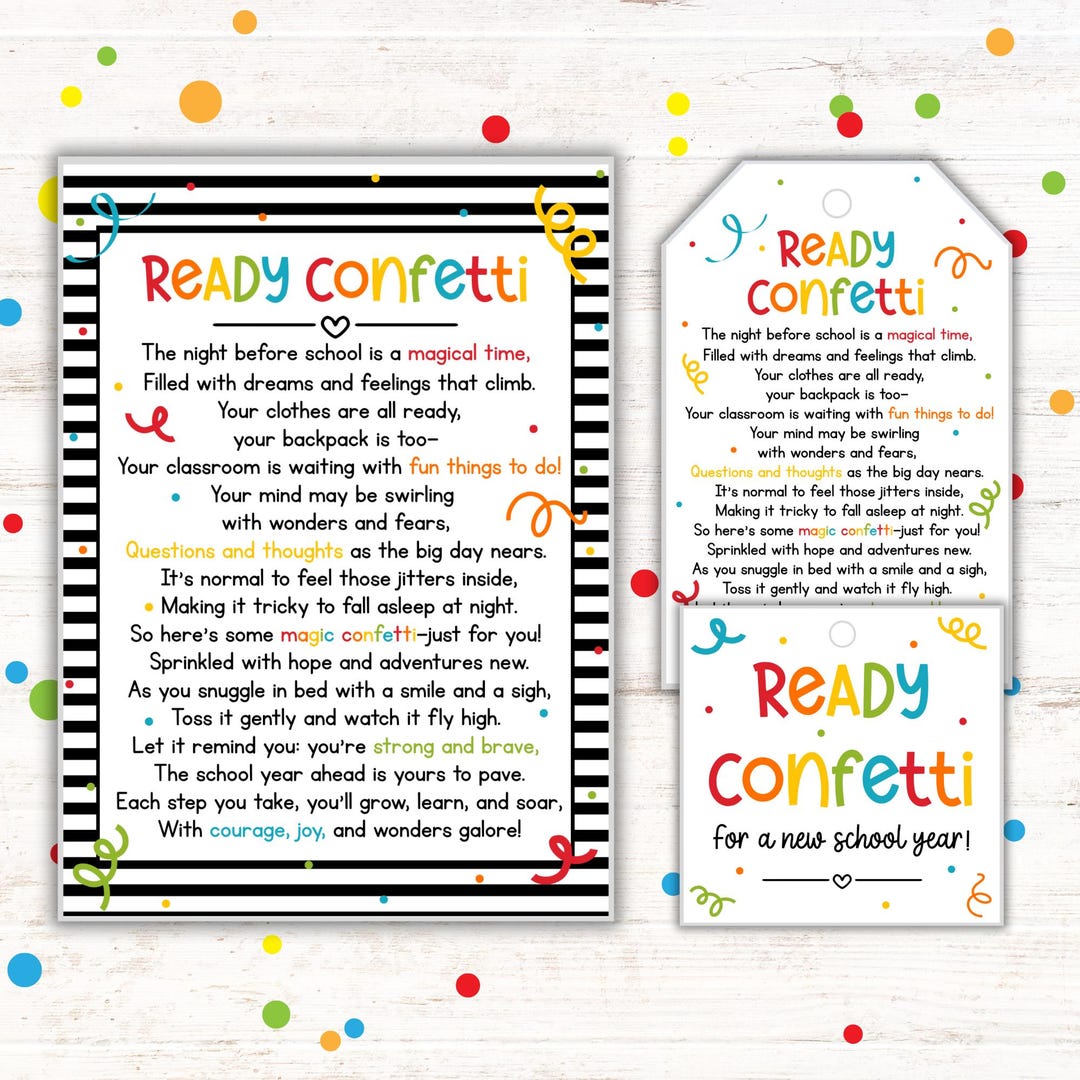 Ready Confetti
The night before school is a magical time,
Filled with dreams and feelings that climb.
Your clothes are all ready,
your backpack is too–
Your classroom is waiting with fun things to do!
Your mind may be swirling
with wonders and fears,
Questions and thoughts as the big day nears.
It's normal to feel those jitters inside,
Making it tricky to fall asleep at night.
So here's some magic confetti–just for you!
Sprinkled with hope and adventures new.
As you snuggle in bed with a smile and a sigh,
Toss it gently and watch it fly high.
Let it remind you: you're strong and brave,
The school year ahead is yours to pave.
Each step you take, you'll grow, learn, and soar,
With courage, joy, and wonders galore!
Ready
Confetti
The night before school is a magical time,
Filled with dreams and feelings that climb.
Your clothes are all ready,
your backpack is too–
Your classroom is waiting with fun things to do!
Your mind may be swirling
with wonders and fears,
Questions and thoughts as the big day nears.
It's normal to feel those jitters inside,
Making it tricky to fall asleep at night.
So here's some magic confetti–just for you!
Sprinkled with hope and adventures new.
As you snuggle in bed with a smile and a sigh,
Toss it gently and watch it fly high.
Ready
Confetti
for a new school year!